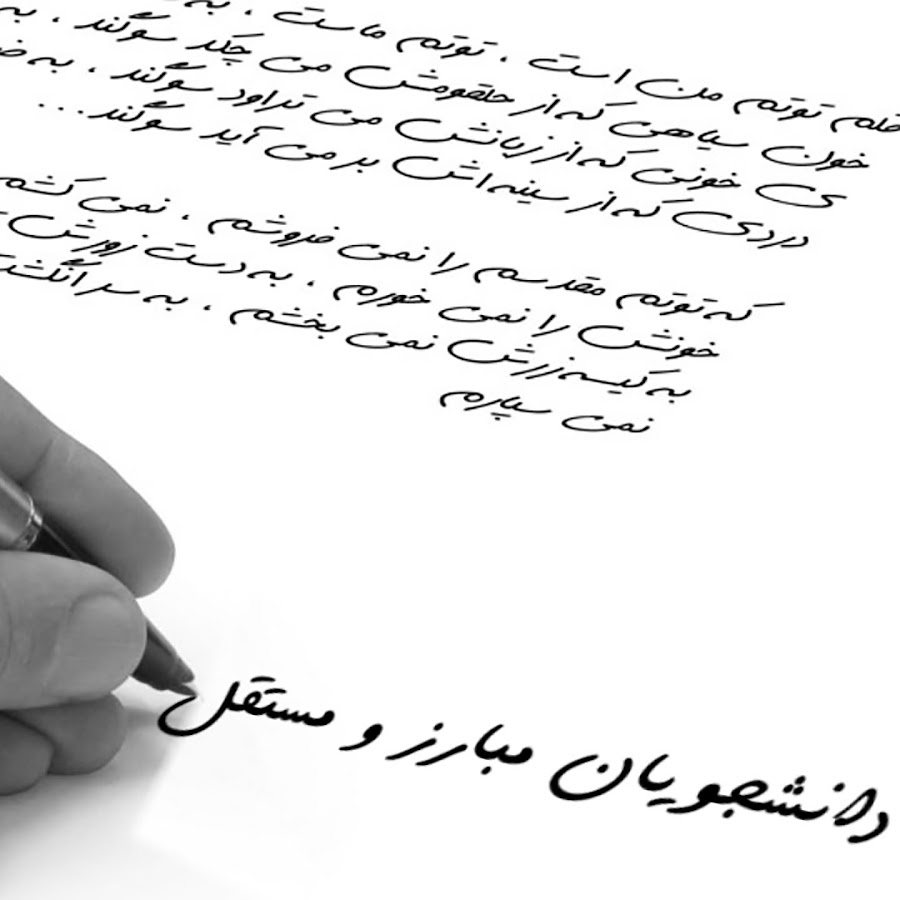 قلم توتم من است ، توتم ماست ، به
خون سیاهی که از حلقومش می چکد سوگند ، به
ی خونی که از زبانش می تراود سوگند ، به
دردی که از سینه اش بر می آید سوگند...
که توتم مقدسم را نمی فروشم ، نمی کشم
خونش را نمی خورم ، به دست زورش
به کیسه زرش نمی بخشم ، به سر انگشت
نمی سپارم
دانشجویان مبارز و مستقل